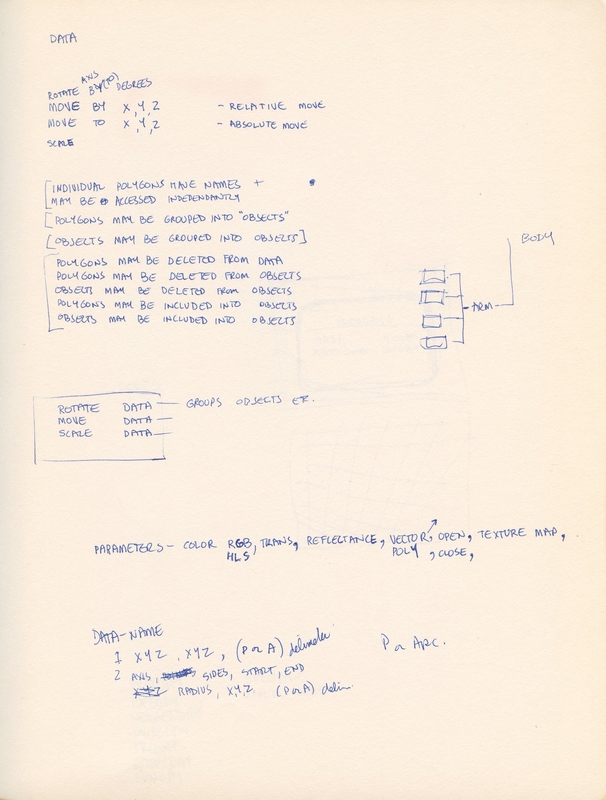 DATA
AXS
ROTATE BY(TO) DEGREES
MOVE BY X,Y,Z - RELATIVE MOVE
MOVE TO X,Y,Z - ABSOLUTE MOVE
SCALE
[INDIVIDUAL POLYGONS HAVE NAMES +
MAY BE ACCESSED INDEPENDANTLY
[POLYGONS MAY BE GROUPED INTO "OBJECTS"
[OBJECTS MAY BE GROUPED INTO OBJECTS]
POLYGONS MAY BE DELETED FROM DATA
POLYGONS MAY BE DELETED FROM OBJECTS
OBJECTS MAY BE DELETED FROM OBJECTS
POLYGONS MAY BE INCLUDED INTO OBJECTS
OBJECTS MAY BE INCLUDED INTO OBJECTS
BODY
ARM
ROTATE DATA — GROUPS OBJECTS
MOVE DATA —
SCALE DATA —
PARAMETERS - COLOR RGB, TRANS, REFLECTANCE, VECTOR, OPEN, TEXTURE MAP,
HLS POLY, CLOSE,
DATA-NAME
1 XYZ, XYZ, (P or A) delimeter
P or ARC.
2 AXIS, SIDES, START, END
RADIUS, X,Y,Z (P or A) delim.